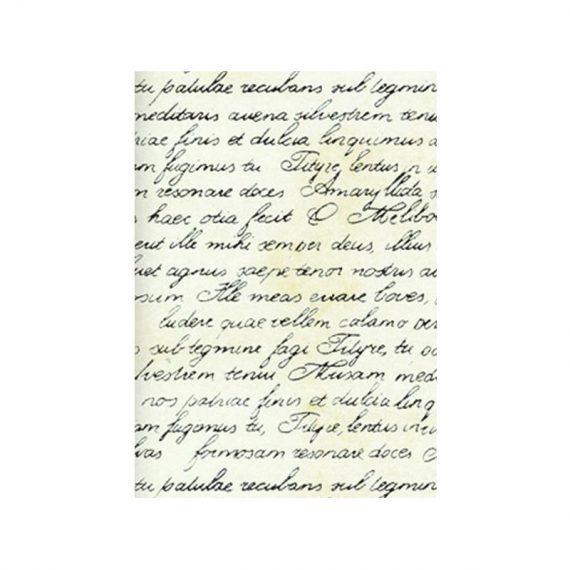 tu patulae recubans sub tegmin
meditaris avena silvestrem tenu
riae finis et dulcia linquimus a
m fugimus tu Tityre, lentus, n u
m resonare doces Amaryllida s
s haec otia fecit O Melibo
erit ille mihi semper deus, illius
uet agnus saepe tenor nostris au
sum Ille meas errare boves,
ludere quae vellem calamo per
s sub tegmine fagi Tityre, tu
lvestrem tenui Musam medi
nos patriae finis et dulcia linq
am fugamus tu, Tityre, lentus in u
lvas formosam resonare doces
tu patulae recubans sub tegmin